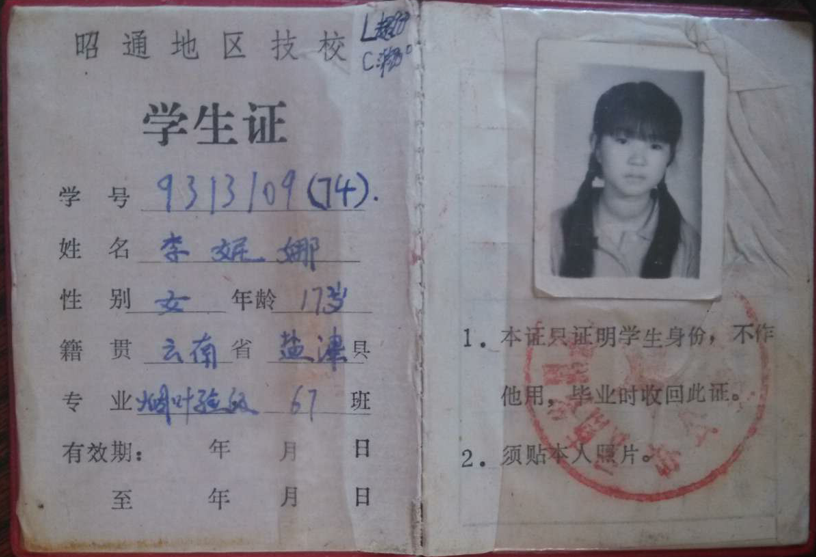 昭通地区技校
学生证
学号 9313109(74).
姓名 李妮娜
性别 女 年龄 17岁
籍贯 云南省 盐津县
专业 烟叶验级 67班
有效期： 年 月 日
至 年 月 日
1. 本证只证明学生身份，不作
他用，毕业时收回此证。
2. 须贴本人照片。